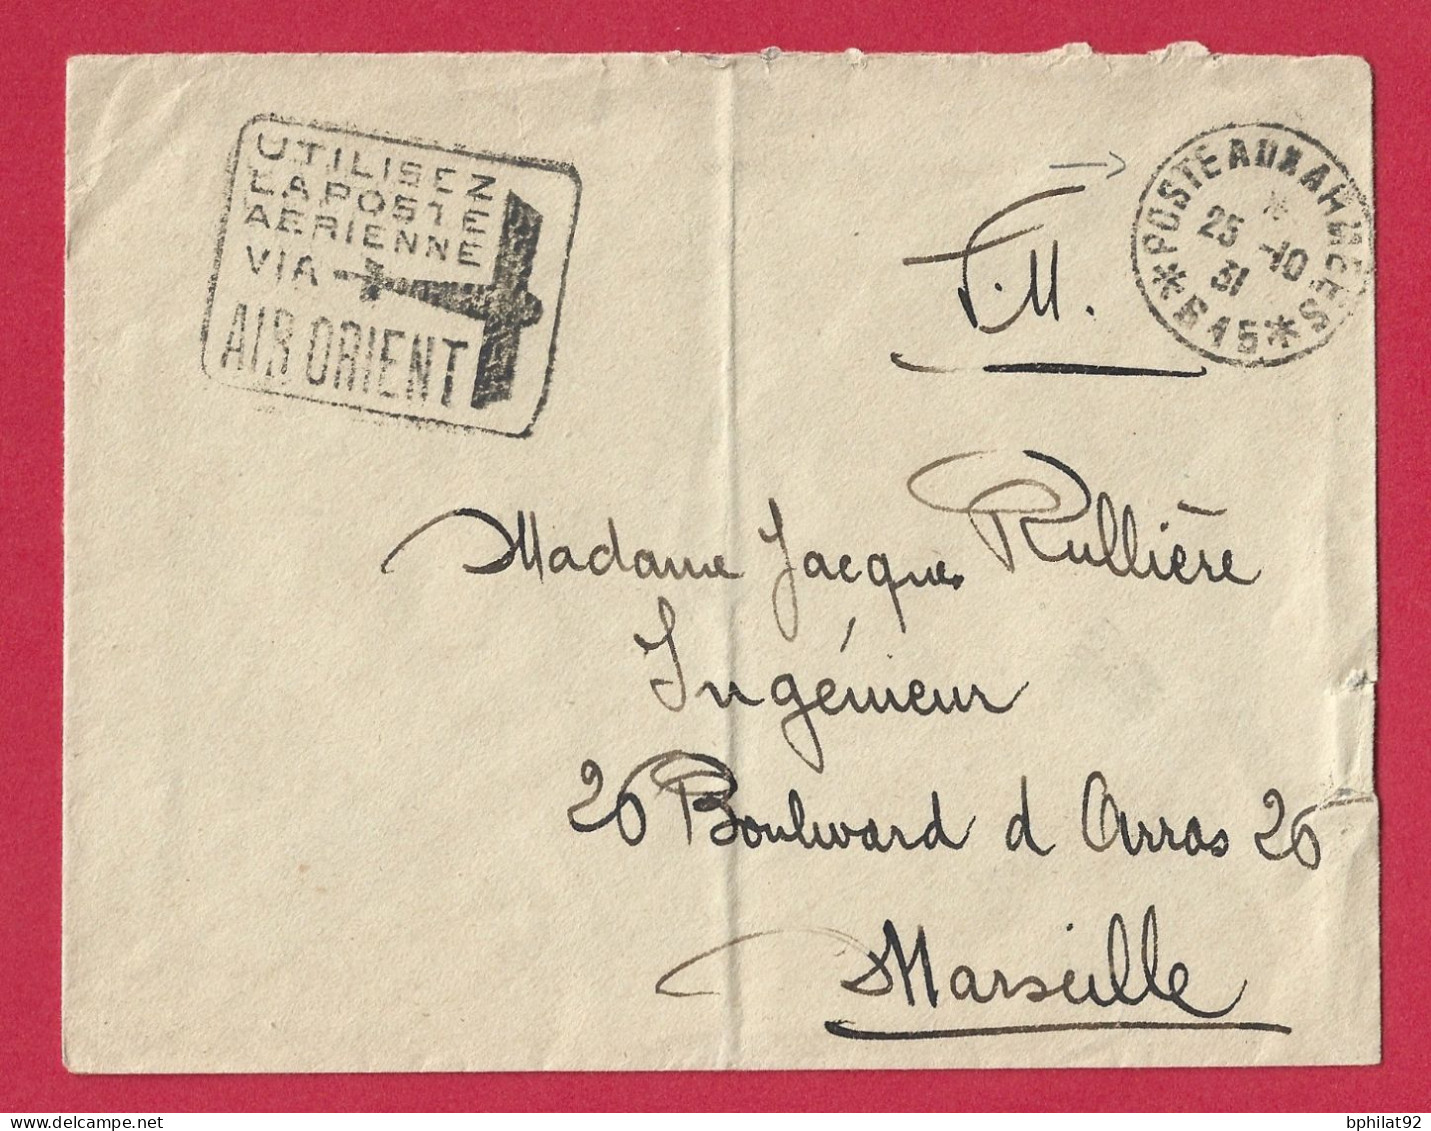 UTILISEZ
LA POSTE
AERIENNE
VIA
AIR ORIENT
* POSTE AUX ARMEES *
25 -10
31
* 615 *
F.M.
Madame Jacques Rullière
Ingénieur
26 Boulevard d Arras 26
Marseille
bphilat92